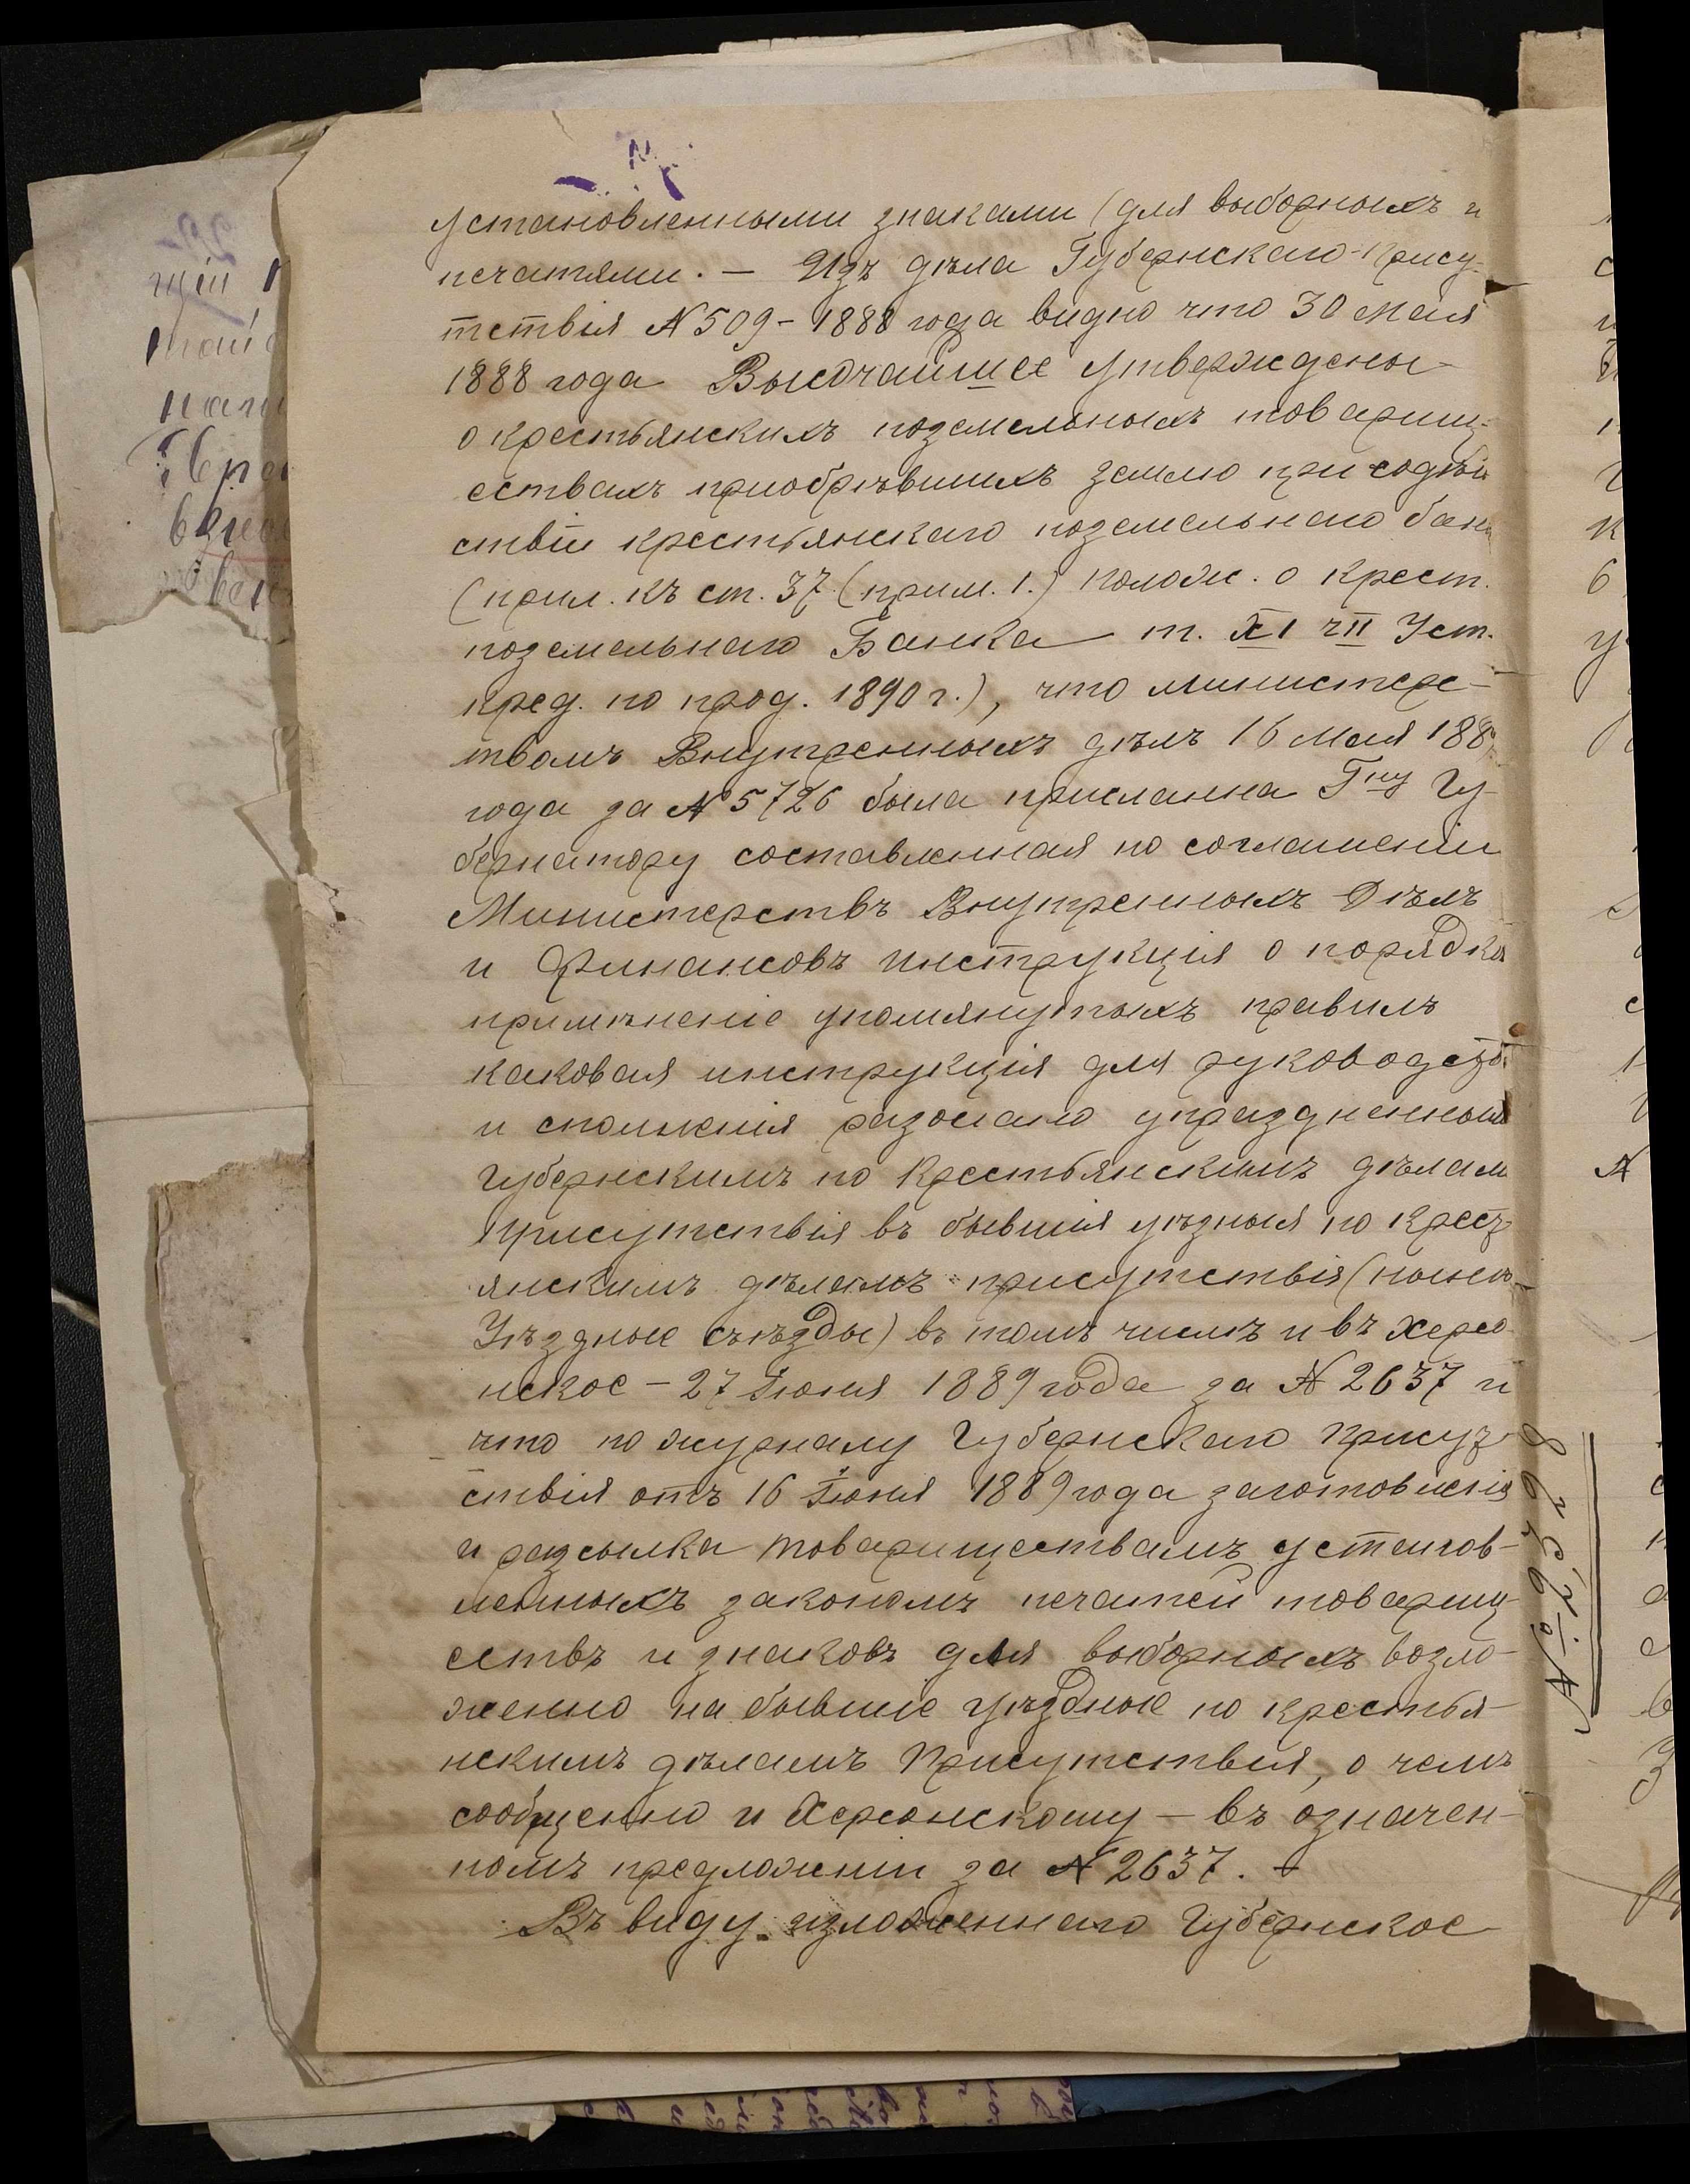 установленными знаками (для выборныхъ и
печатями. — Изъ дѣла Губернскаго Прису-
тствія № 509 - 1888 года видно что 30 Мая
1888 года Высочайшее утверждены
о крестьянскихъ поземельныхъ товарищ-
ествахъ приобрѣвшихъ землю при содѣй
ствіи крестьянскаго поземельнаго бан
(прил. къ ст. 37 (прим. 1.) полож. о крест.
поземельнаго Банка т. XI ч II Уст.
кред. по прод. 1890 г.), что министерс-
твомъ Внутреннихъ дѣлъ 16 Мая 188
года за № 5726 была присланна Гну Гу-
бернатору составленная по соглашенію
Министерствъ Внутреннихъ Дѣлъ
и Финансовъ инструкція о порядкѣ
примѣненіе упомянутыхъ правилъ
каковая инструкція для руководств
и сполненія разослано упраздненнымъ
Губернскимъ по Крестьянскимъ дѣлам
Присутствія въ бывшія уѣздныя по крест
янскимъ дѣламъ присутствія (нынѣ
Уѣздные съѣзды) въ томъ числѣ и въ Херсо
нское — 27 Іюня 1889 года за № 2637 и
что по журналу Губернскаго Присут
ствія отъ 16 Іюня 1889 года заготовленія
и разсылка товариществамъ установ-
ленныхъ закономъ печатей товарищ
ествъ и знаковъ для выборныхъ возло-
женно на бывшіе уѣздные по крестья-
нскимъ дѣламъ Присутствія, о чемъ
сообщенно и Херсонскому — въ означен-
номъ предложеніи за № 2637. —
Въ виду изложеннаго Губернское